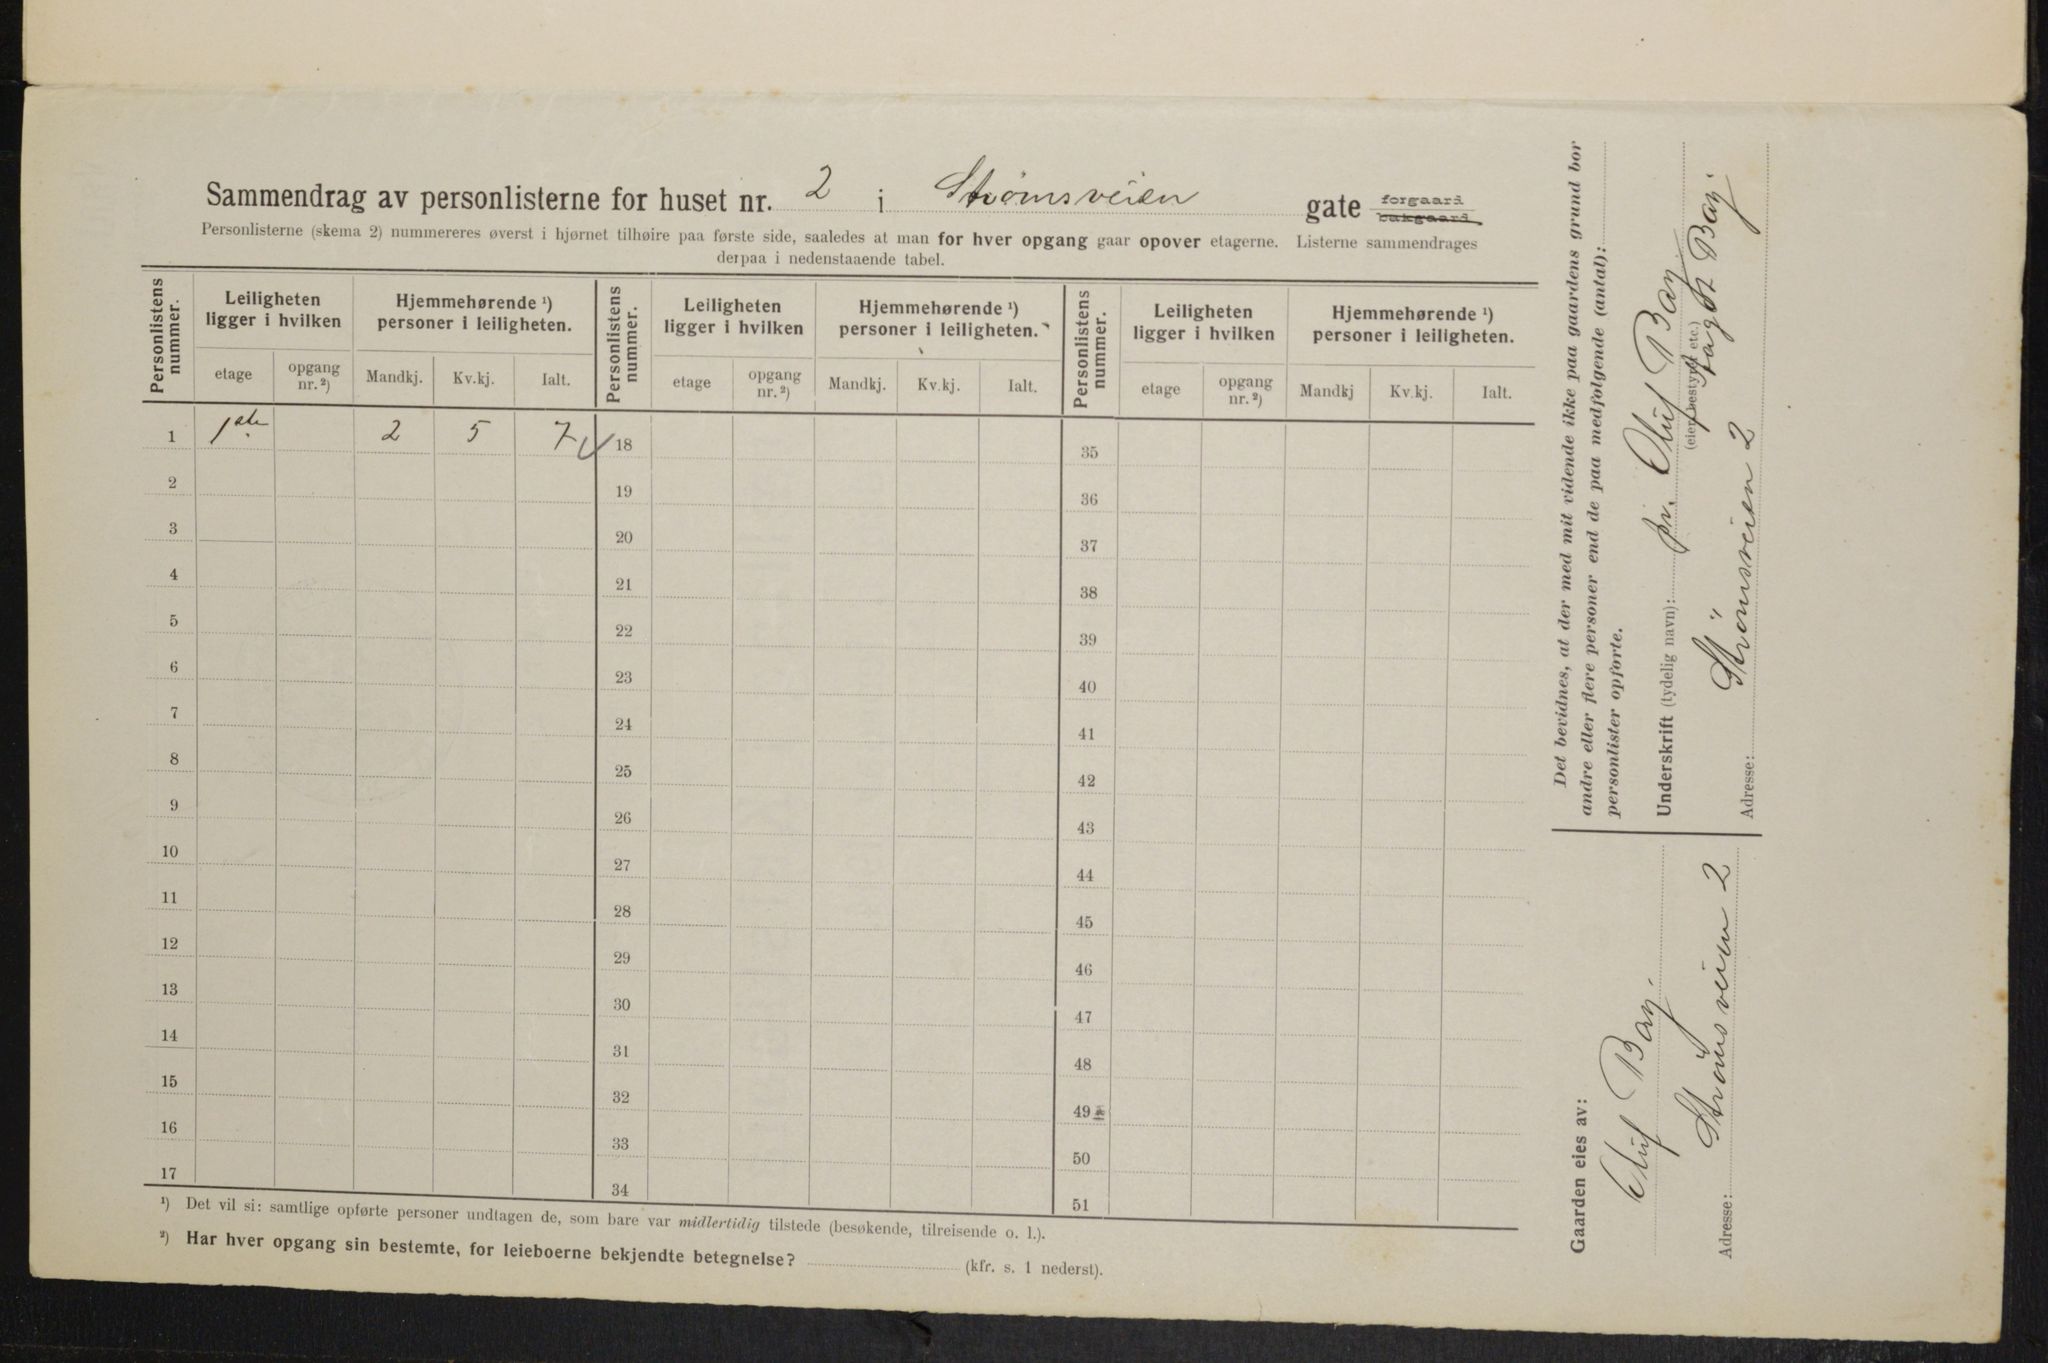 Sammendrag av personlisterne for huset nr. 2 i Strømsveien gate forgaard bakgaard
Personlisterne (skema 2) nummereres øverst i hjørnet tilhøire paa første side, saaledes at man for hver opgang gaar opover etagerne. Listerne sammendrages
derpaa i nedenstaaende tabel.
Personlistens nummer. Leiligheten ligger i hvilken Hjemmehørende ¹) personer i leiligheten. Personlistens nummer. Leiligheten ligger i hvilken Hjemmehørende ¹) personer i leiligheten. Personlistens nummer. Leiligheten ligger i hvilken Hjemmehørende ¹) personer i leiligheten.
etage opgang nr. ²) Mandkj. Kv.kj. Ialt. etage opgang nr. ²) Mandkj. Kv.kj. Ialt. etage opgang nr. ²) Mandkj Kv.kj. Ialt.
1 1ste 2 5 7 18 35
2 19 36
3 20 37
4 21 38
5 22 39
6 23 40
7 24 41
8 25 42
9 26 43
10 27 44
11 28 45
12 29 46
13 30 47
14 31 48
15 32 49
16 33 50
17 34 51
¹) Det vil si: samtlige opførte personer undtagen de, som bare var midlertidig tilstede (besøkende, tilreisende o. l.).
²) Har hver opgang sin bestemte, for leieboerne bekjendte betegnelse? (kfr. s. 1 nederst).
Det bevidnes, at der med mit vidende ikke paa gaardens grund bor
andre eller flere personer end de paa medfølgende (antal):
personlister opførte.
Underskrift (tydelig navn): pr. Oluf Bay
(eier, bestyrer etc.) Bay.
Adresse: Strömsveien 2
Gaarden eies av:
Oluf Bay.
Adresse: Strömsveien 2